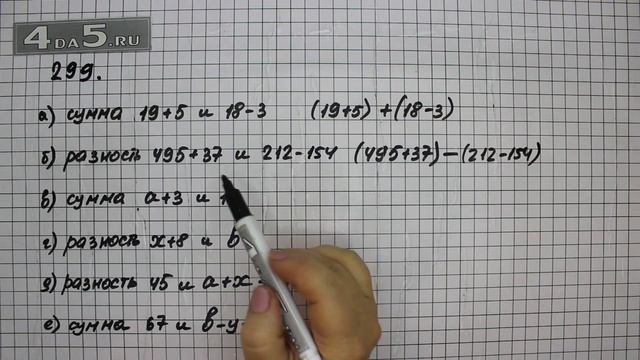 4DA5.RU
299.
а) сумма 19+5 и 18-3 (19+5)+(18-3)
б) разность 495+37 и 212-154 (495+37)-(212-154)
в) сумма a+3 и
г) разность x+8 и b
д) разность 45 и a+x
е) сумма 67 и b-y-